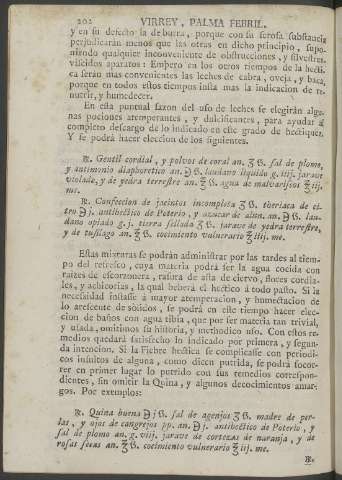 202 VIRREY, PALMA FEBRIL.
y en su defecto la de burra, porque con su serosa substancia
perjudicarán menos que las otras en dicho principio, supo-
niendo qualquier inconveniente de obstrucciones, y silvestres,
viscidos aparatos: Empero en los otros tiempos de la hecti-
ca serán mas convenientes las leches de cabra, oveja, y baca,
porque en todos estos tiempos insta mas la indicacion de nu-
trir, y humedecer.
En esta puntual sazon del uso de leches se elegirán algu-
nas pociones atemperantes, y dulcificantes, para ayudar á
completo descargo de lo indicado en este grado de hectiquez.
Y se podrá hacer eleccion de los siguientes.
℞. Gentil cordial, y polvos de coral an. ʒ ß. sal de plomo,
y antimonio diaphoretico an. ℈ ß. laudano liquido g. iiij. jarave
violado, y de yedra terrestre an. ℥ ß. agua de malvavissos ℥ iij.
me.
℞. Confeccion de jacintos incompleta ʒ ß. theriaca de ci-
tro ℈ j. antihectico de Poterio, y azucar de alun. an. ℈ ß. lau-
dano opiado g. j. tierra sellada ʒ ß. jarave de yedra terrestre,
y de tusilago an. ℥ ß. cocimiento vulnerario ℥ iiij. me.
Estas mixturas se podrán administrar por las tardes al tiem-
po del refresco, cuya materia podrá ser la agua cocida con
raices de escorzonera, rasura de asta de ciervo, flores cordia-
les, y achicorias, la qual beberá el hectico á todo pasto. Si la
necesidad instasse á mayor atemperacion, y humectacion de
lo arefcente de sólidos, se podrá en este tiempo hacer elec-
cion de baños con agua tibia, que por ser materia tan trivial,
y usada, omitimos su historia, y methodico uso. Con estos re-
medios quedará satisfecho lo indicado por primera, y segun-
da intencion. Si la Fiebre hectica se complicasse con periodi-
cos insultos de alguna, como dicen putrida, se podrá socor-
rer en primer lugar lo putrido con sus remedios correspon-
dientes, sin omitir la Quina, y algunos decocimientos amar-
gos. Por exemplo:
℞. Quina buena ℈ j ß. sal de agenjos ʒ ß. madre de per-
las, y ojos de cangrejos pp. an. ℈ j. antihectico de Poterio, y
sal de plomo an. g. viij. jarave de cortezas de naranja, y de
rosas secas an. ℥ ß. cocimiento vulnerario ℥ iij. me.
℞.